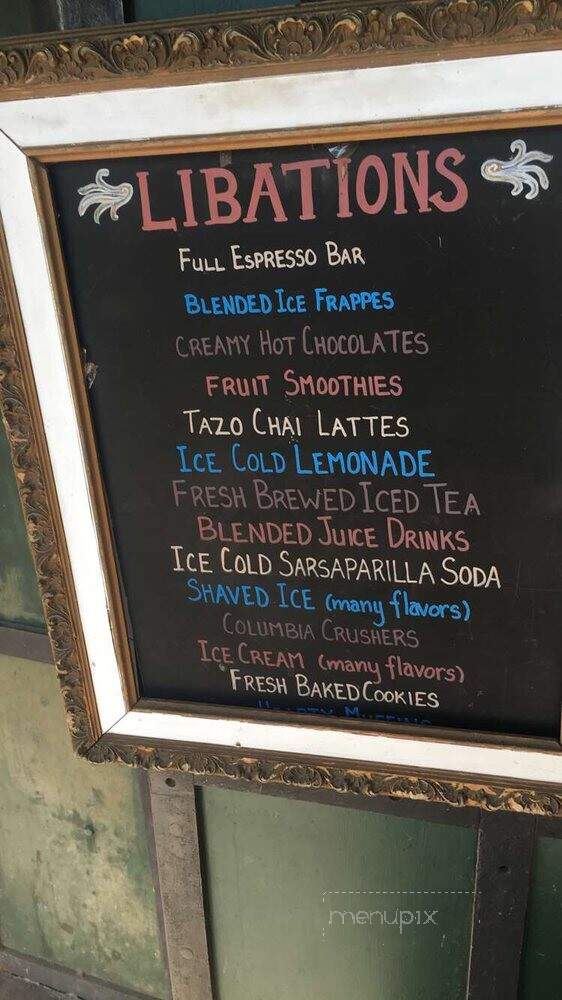 LIBATIONS
FULL ESPRESSO BAR
BLENDED ICE FRAPPES
CREAMY HOT CHOCOLATES
FRUIT SMOOTHIES
TAZO CHAI LATTES
ICE COLD LEMONADE
FRESH BREWED ICED TEA
BLENDED JUICE DRINKS
ICE COLD SARSAPARILLA SODA
SHAVED ICE (many flavors)
COLUMBIA CRUSHERS
ICE CREAM (many flavors)
FRESH BAKED COOKIES
MUFFINS
menupix